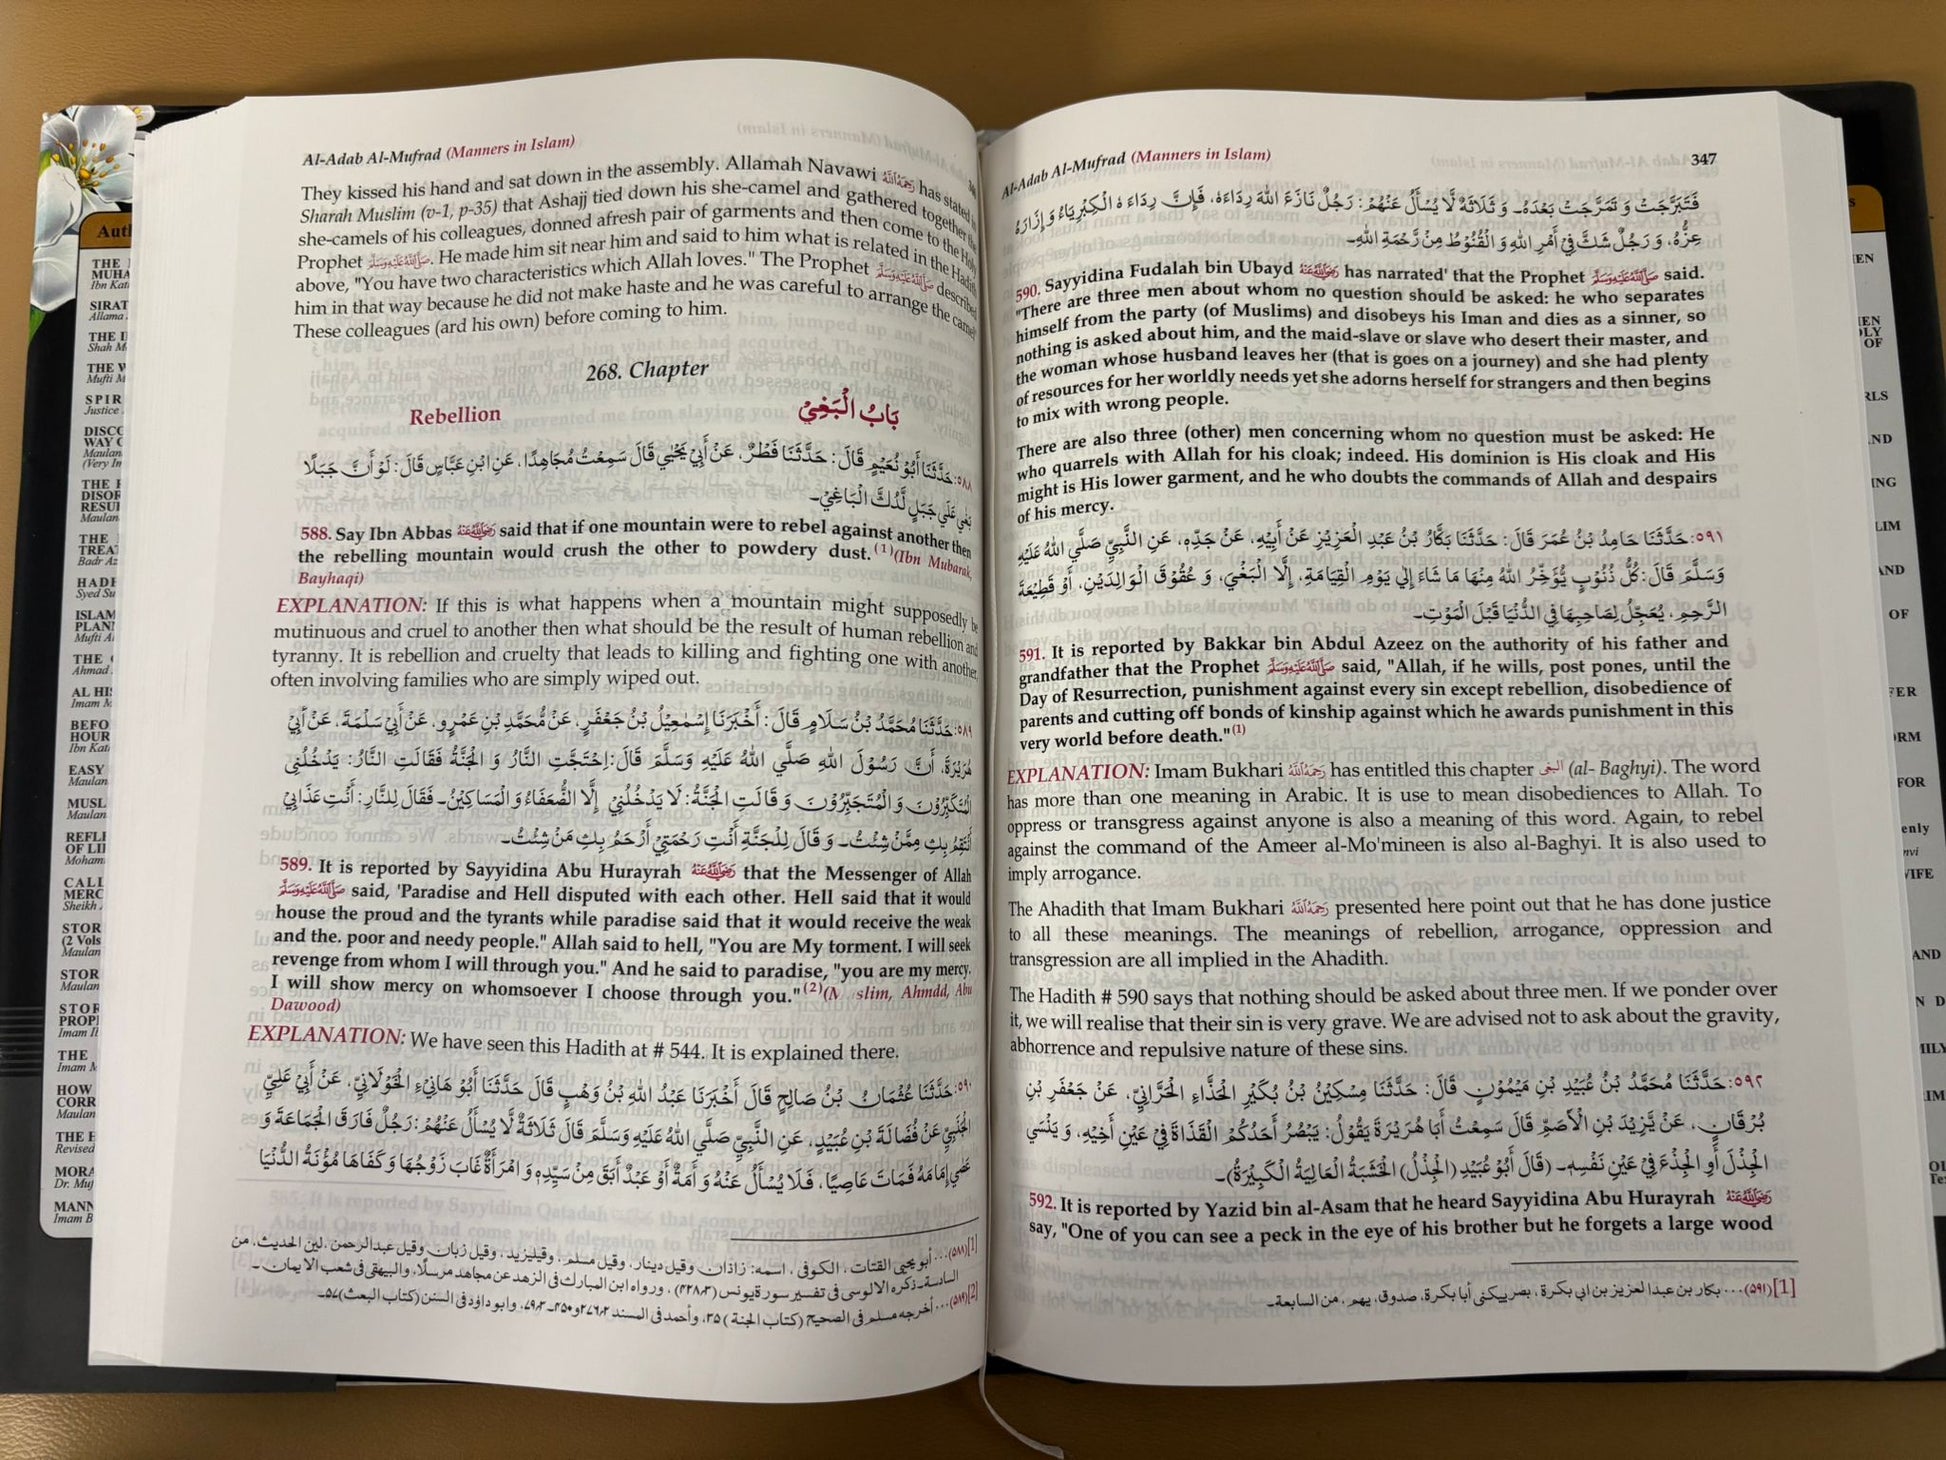 Al-Adab Al-Mufrad (Manners in Islam)
They kissed his hand and sat down in the assembly. Allamah Navawi رحمه الله has stated in
Sharah Muslim (v-1, p-35) that Ashajj tied down his she-camel and gathered together the
she-camels of his colleagues, donned afresh pair of garments and then come to the Holy
Prophet صلى الله عليه وسلم. He made him sit near him and said to him what is related in the Hadith
above, "You have two characteristics which Allah loves." The Prophet صلى الله عليه وسلم described
him in that way because he did not make haste and he was careful to arrange the camel
These colleagues (ard his own) before coming to him.
268. Chapter
Rebellion بَابُ الْبَغْيِ
٥٨٨: حَدَّثَنَا أَبُو نُعَيْمٍ قَالَ: حَدَّثَنَا فَطْرٌ، عَنْ أَبِيْ يَحْيٰي قَالَ سَمِعْتُ مُجَاهِدًا، عَنِ ابْنِ عَبَّاسٍ قَالَ: لَوْ أَنَّ جَبَلًا
بَغٰي عَلٰي جَبَلٍ لَدُكَّ الْبَاغِيْ۔
588. Say Ibn Abbas رضي الله عنه said that if one mountain were to rebel against another then
the rebelling mountain would crush the other to powdery dust.(1)(Ibn Mubarak,
Bayhaqi)
EXPLANATION: If this is what happens when a mountain might supposedly be
mutinuous and cruel to another then what should be the result of human rebellion and
tyranny. It is rebellion and cruelty that leads to killing and fighting one with another,
often involving families who are simply wiped out.
٥٨٩: حَدَّثَنَا مُحَمَّدُ بْنُ سَلَامٍ قَالَ: أَخْبَرَنَا إِسْمٰعِيْلُ بْنُ جَعْفَرٍ، عَنْ مُّحَمَّدِ بْنِ عَمْرٍو، عَنْ أَبِيْ سَلْمَةَ، عَنْ أَبِيْ
هُرَيْرَةَ، أَنَّ رَسُوْلَ اللهِ صَلَّي اللهُ عَلَيْهِ وَسَلَّمَ قَالَ: اِحْتَجَّتِ النَّارُ وَ الْجَنَّةُ فَقَالَتِ النَّارُ: يَدْخُلُنِيْ
الْمُتَكَبِّرُوْنَ وَ الْمُتَجَبِّرُوْنَ وَ قَالَتِ الْجَنَّةُ: لَا يَدْخُلُنِيْ إِلَّا الضُّعَفَاءُ وَ الْمَسَاكِيْنُ۔ فَقَالَ لِلنَّارِ: أَنْتِ عَذَابِيْ
أَنْتَقِمُ بِكِ مِمَّنْ شِئْتُ۔ وَ قَالَ لِلْجَنَّةِ أَنْتِ رَحْمَتِيْ أَرْحَمُ بِكِ مَنْ شِئْتُ۔
589. It is reported by Sayyidina Abu Hurayrah رضي الله عنه that the Messenger of Allah
صلى الله عليه وسلم said, 'Paradise and Hell disputed with each other. Hell said that it would
house the proud and the tyrants while paradise said that it would receive the weak
and the. poor and needy people." Allah said to hell, "You are My torment. I will seek
revenge from whom I will through you." And he said to paradise, "you are my mercy.
I will show mercy on whomsoever I choose through you."(2)(M slim, Ahmdd, Abu
Dawood)
EXPLANATION: We have seen this Hadith at # 544. It is explained there.
٥٩٠: حَدَّثَنَا عُثْمَانُ بْنُ صَالِحٍ قَالَ أَخْبَرَنَا عَبْدُ اللهِ بْنُ وَهْبٍ قَالَ حَدَّثَنَا أَبُوْ هَانِيْءٍ الْخَوْلَانِيْ، عَنْ أَبِيْ عَلِيٍّ
الْجَنْبِيِّ عَنْ فُضَالَةَ بْنِ عُبَيْدٍ، عَنِ النَّبِيِّ صَلَّي اللهُ عَلَيْهِ وَسَلَّمَ قَالَ ثَلَاثَةٌ لَّا يُسْأَلُ عَنْهُمْ: رَجُلٌ فَارَقَ الْجَمَاعَةَ وَ
عَصٰي إِمَامَهُ فَمَاتَ عَاصِيًا، فَلَا يُسْأَلُ عَنْهُ وَ أَمَةٌ أَوْ عَبْدٌ أَبَقَ مِنْ سَيِّدِهٖ وَ امْرَأَةٌ غَابَ زَوْجُهَا وَ كَفَاهَا مُؤْنَةُ الدُّنْيَا
[1](٥٨٨)... أبو يحيى القتات، الكوفى، اسمه: زاذان وقيل دينار، وقيل مسلم، وقيل يزيد، وقيل زبان وقيل عبدالرحمن، لين الحديث، من
السادسة۔ ذكره الالوسى فى تفسير سورة يونس (٤٢٨/٢)، ورواه ابن المبارك فى الزهد عن مجاهد مرسلًا، والبيهقى فى شعب الايمان۔
[2](٥٨٩)... أخرجه مسلم فى الصحيح (كتاب الجنة) ٣٥، وأحمد فى المسند ٢٧٦/٢ و٤٥٠۔ ٧٩/٣، وابو داؤد فى السنن (كتاب البعث) ٥٧۔
Al-Adab Al-Mufrad (Manners in Islam) 347
فَتَبَرَّجَتْ وَ تَمَرَّجَتْ بَعْدَهُ۔ وَ ثَلَاثَةٌ لَّا يُسْأَلُ عَنْهُمْ: رَجُلٌ نَازَعَ اللهَ رِدَاءَهُ، فَإِنَّ رِدَاءَ هُ الْكِبْرِيَاءُ وَ إِزَارَهُ
عِزُّهُ، وَ رَجُلٌ شَكَّ فِيْ أَمْرِ اللهِ وَ الْقُنُوْطُ مِنْ رَّحْمَةِ اللهِ۔
590. Sayyidina Fudalah bin Ubayd رضي الله عنه has narrated' that the Prophet صلى الله عليه وسلم said.
"There are three men about whom no question should be asked: he who separates
himself from the party (of Muslims) and disobeys his Iman and dies as a sinner, so
nothing is asked about him, and the maid-slave or slave who desert their master, and
the woman whose husband leaves her (that is goes on a journey) and she had plenty
of resources for her worldly needs yet she adorns herself for strangers and then begins
to mix with wrong people.
There are also three (other) men concerning whom no question must be asked: He
who quarrels with Allah for his cloak; indeed. His dominion is His cloak and His
might is His lower garment, and he who doubts the commands of Allah and despairs
of his mercy.
٥٩١: حَدَّثَنَا حَامِدُ بْنُ عُمَرَ قَالَ: حَدَّثَنَا بَكَّارُ بْنُ عَبْدِ الْعَزِيْزِ عَنْ أَبِيْهِ، عَنْ جَدِّهٖ، عَنِ النَّبِيِّ صَلَّي اللهُ عَلَيْهِ
وَسَلَّمَ قَالَ: كُلُّ ذُنُوْبٍ يُّؤَخِّرُ اللهُ مِنْهَا مَا شَاءَ إِلٰي يَوْمِ الْقِيَامَةِ، إِلَّا الْبَغْيَ، وَ عُقُوْقَ الْوَالِدَيْنِ، أَوْ قَطِيْعَةَ
الرَّحِمِ، يُعَجِّلُ لِصَاحِبِهَا فِي الدُّنْيَا قَبْلَ الْمَوْتِ۔
591. It is reported by Bakkar bin Abdul Azeez on the authority of his father and
grandfather that the Prophet صلى الله عليه وسلم said, "Allah, if he wills, post pones, until the
Day of Resurrection, punishment against every sin except rebellion, disobedience of
parents and cutting off bonds of kinship against which he awards punishment in this
very world before death."(1)
EXPLANATION: Imam Bukhari رحمه الله has entitled this chapter البغى (al- Baghyi). The word
has more than one meaning in Arabic. It is use to mean disobediences to Allah. To
oppress or transgress against anyone is also a meaning of this word. Again, to rebel
against the command of the Ameer al-Mo'mineen is also al-Baghyi. It is also used to
imply arrogance.
The Ahadith that Imam Bukhari رحمه الله presented here point out that he has done justice
to all these meanings. The meanings of rebellion, arrogance, oppression and
transgression are all implied in the Ahadith.
The Hadith # 590 says that nothing should be asked about three men. If we ponder over
it, we will realise that their sin is very grave. We are advised not to ask about the gravity,
abhorrence and repulsive nature of these sins.
٥٩٢: حَدَّثَنَا مُحَمَّدُ بْنُ عُبَيْدِ بْنِ مَيْمُوْنٍ قَالَ: حَدَّثَنَا مِسْكِيْنُ بْنُ بُكَيْرِ الْحَذَّاءِ الْحَرَّانِيِّ، عَنْ جَعْفَرِ بْنِ
بُرْقَانٍ، عَنْ يَّزِيْدَ بْنِ الْأَصَمِّ قَالَ سَمِعْتُ أَبَا هُرَيْرَةَ يَقُوْلُ: يَبْصُرُ أَحَدُكُمُ الْقَذَاةَ فِيْ عَيْنِ أَخِيْهِ، وَ يَنْسَي
الْجِذْلَ أَوِ الْجِذْعَ فِيْ عَيْنِ نَفْسِهٖ۔ (قَالَ أَبُوْ عُبَيْدٍ (الْجِذْلُ) الْخَشَبَةُ الْعَالِيَةُ الْكَبِيْرَةُ)۔
592. It is reported by Yazid bin al-Asam that he heard Sayyidina Abu Hurayrah رضي الله عنه
say, "One of you can see a peck in the eye of his brother but he forgets a large wood
[1](٥٩١)... بكار بن عبد العزيز بن ابي بكرة، بصرييكنى أبا بكرة، صدوق، يهم، من السابعة۔